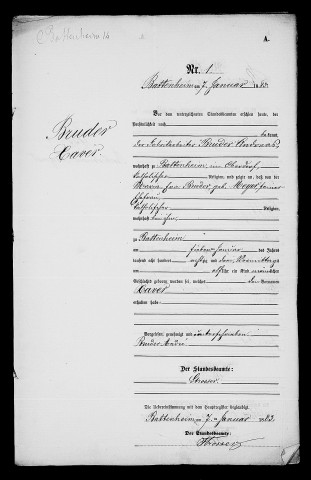 A.
Nr. 1.
Battenheim, am 7. Januar 1883.
Vor dem unterzeichneten Standesbeamten erschien heute, der
Persönlichkeit nach
bekannt,
der Fabrikarbeiter Bruder Andreas
wohnhaft zu Battenheim im Oberdorf
katholischer Religion, und zeigte an, daß von der
Maria Bruder geb. Meyer seiner
Ehefrau
katholischer Religion,
wohnhaft bei ihm
zu Battenheim
am siebten Januar des Jahres
tausend acht hundert achtzig und drei Vormittags
um Uhr ein Kind männlichen
Geschlechts geboren worden sei, welches den Vornamen
Xaver
erhalten habe.
Vorgelesen, genehmigt und unterschrieben
Bruder André
Der Standesbeamte:
Die Uebereinstimmung mit dem Hauptregister beglaubigt.
Battenheim, am 7. Januar 1883.
Der Standesbeamte:
Bruder
Xaver.